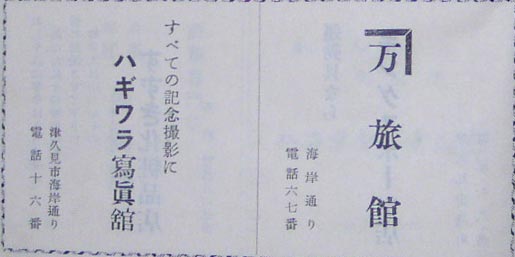 万旅館
海岸通り
電話六七番
すべての記念撮影に
ハギワラ寫眞舘
津久見市海岸通り
電話十六番